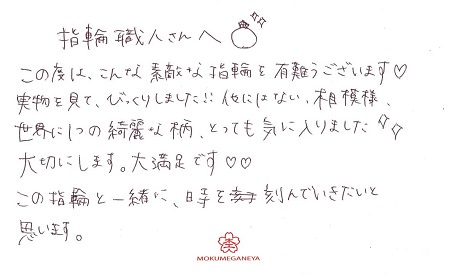 指輪職人さんへ
この度は、こんな素敵な指輪を有難うございます♡
実物を見て、びっくりしました!! 他にはない、相模様、
世界に1つの綺麗な柄、とっても気に入りました
大切にします。大満足です♡♡
この指輪と一緒に、時を刻んでいきたいと
思います。
MOKUMEGANEYA